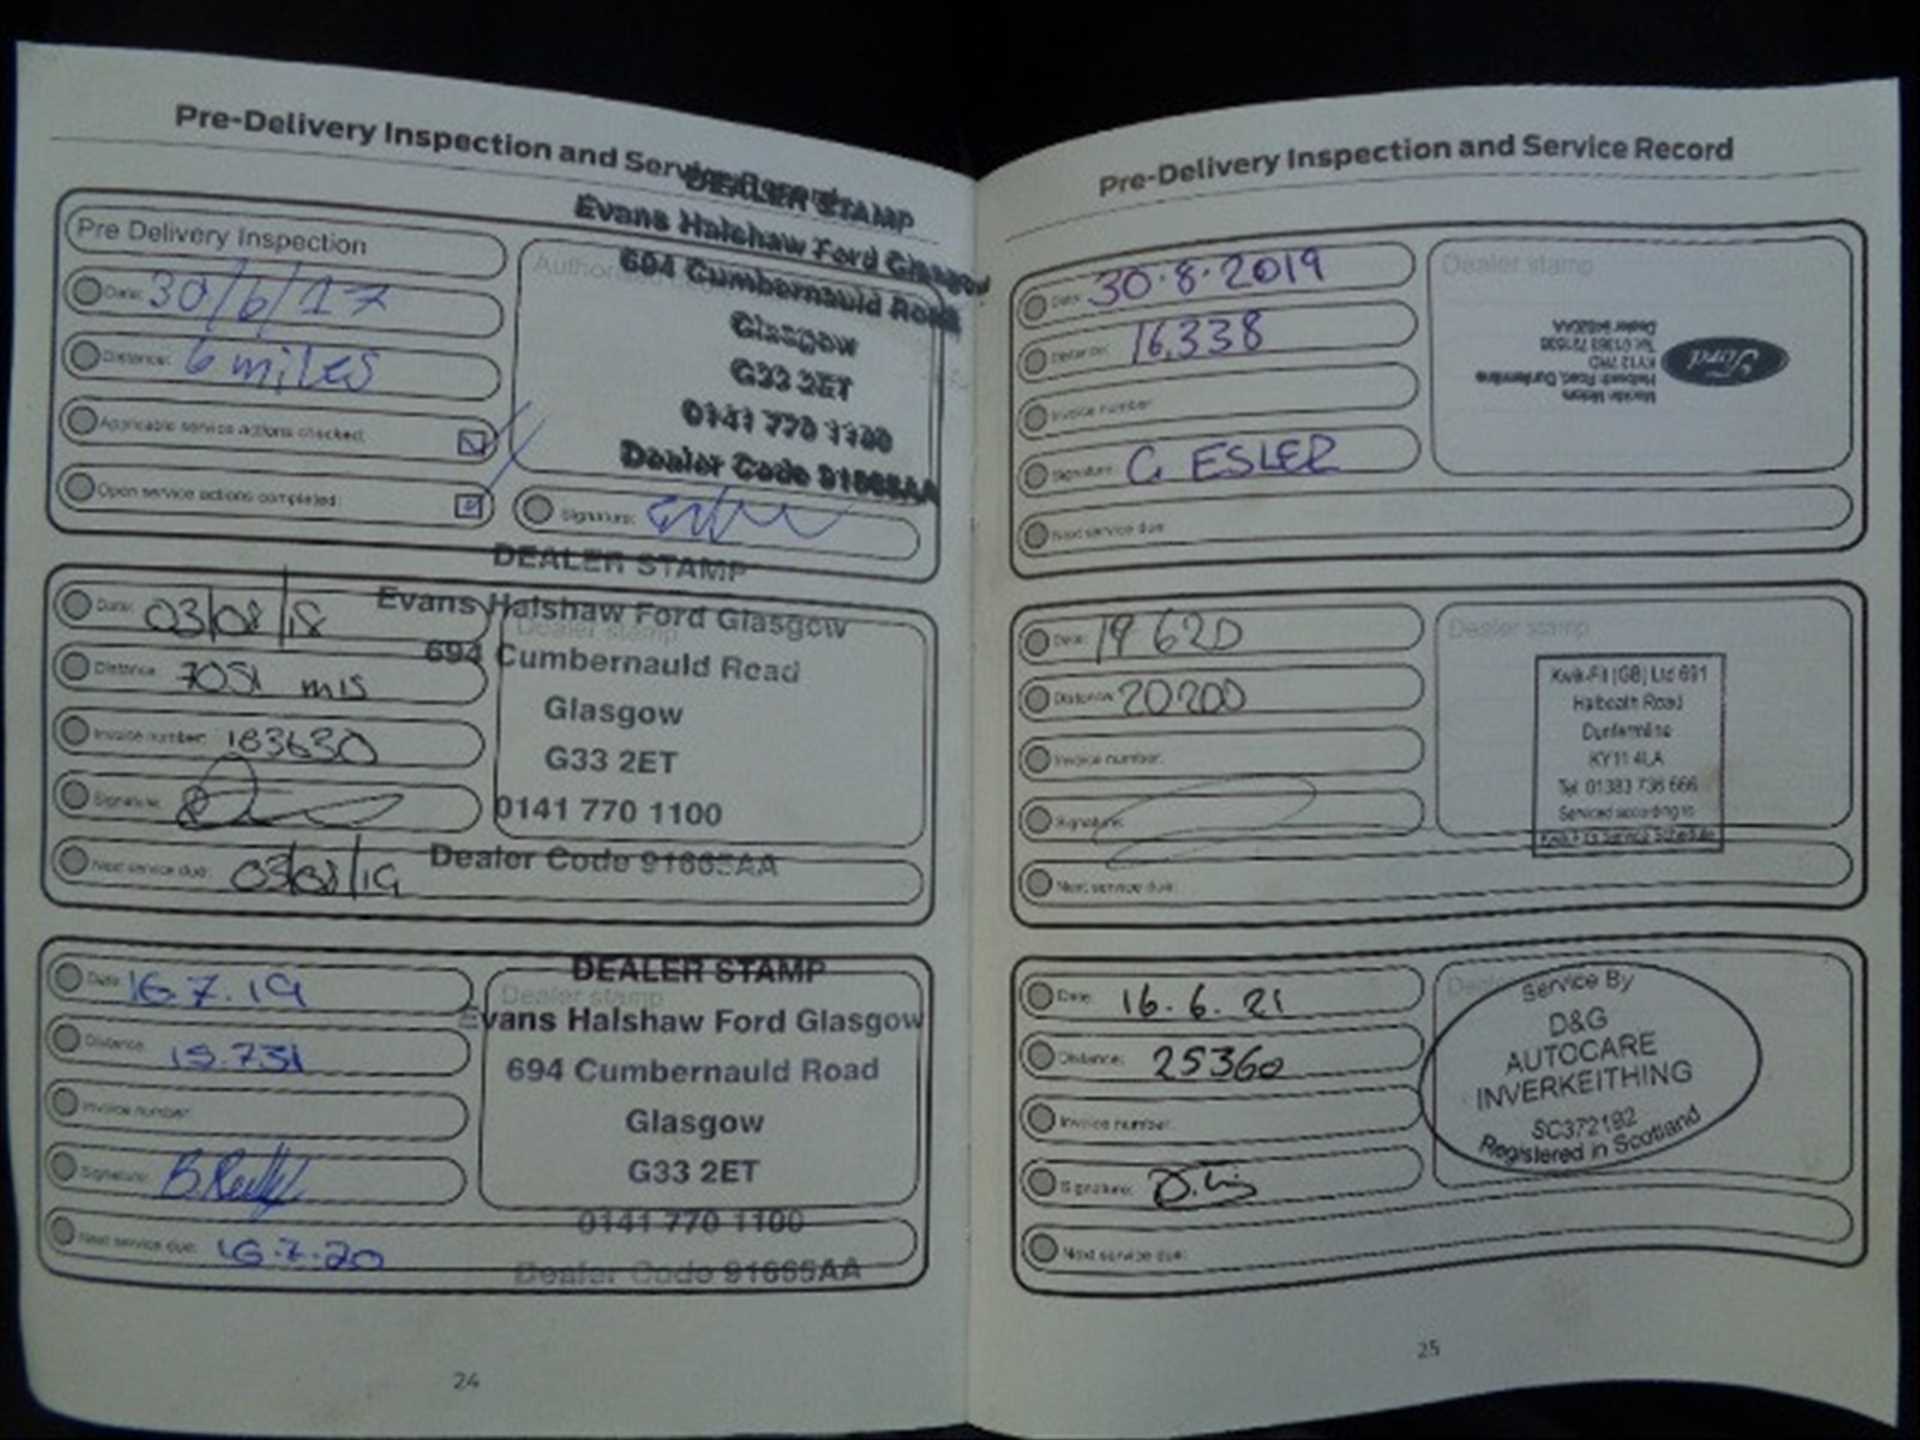 Pre-Delivery Inspection and Service Record
Pre Delivery Inspection
Date: 30/6/17
Distance: 6 miles
Applicable service actions checked:
Open service actions completed:
DEALER STAMP
Evans Halshaw Ford Glasgow
694 Cumbernauld Road
Glasgow
G33 2ET
0141 770 1100
Dealer Code 91665AA
Signature:
Date: 03/08/18
Distance: 7051 mls
Invoice number: 183630
Signature:
Next service due: 03/08/19
Dealer stamp
DEALER STAMP
Evans Halshaw Ford Glasgow
694 Cumbernauld Road
Glasgow
G33 2ET
0141 770 1100
Dealer Code 91665AA
Date: 16.7.19
Distance: 15.731
Invoice number:
Signature: B. Reilly
Next service due: 16.7.20
Dealer stamp
DEALER STAMP
Evans Halshaw Ford Glasgow
694 Cumbernauld Road
Glasgow
G33 2ET
0141 770 1100
Dealer Code 91665AA
24
Pre-Delivery Inspection and Service Record
Date: 30.8.2019
Distance: 16,338
Invoice number:
Signature: C. ESLER
Next service due:
Dealer stamp
Ford
Motors
Halbeath Road, Dunfermline
KY12 7RD
Date: 19 620
Distance: 20200
Invoice number:
Signature:
Next service due:
Dealer stamp
Kwik-Fit (GB) Ltd 691
Halbeath Road
Dunfermline
KY11 4LA
Tel: 01383 736 666
Serviced according to
Kwik-Fit's Service Schedule
Date: 16.6.21
Distance: 25360
Invoice number:
Signature:
Next service due:
Service By
D&G
AUTOCARE
INVERKEITHING
SC372192
Registered in Scotland
25